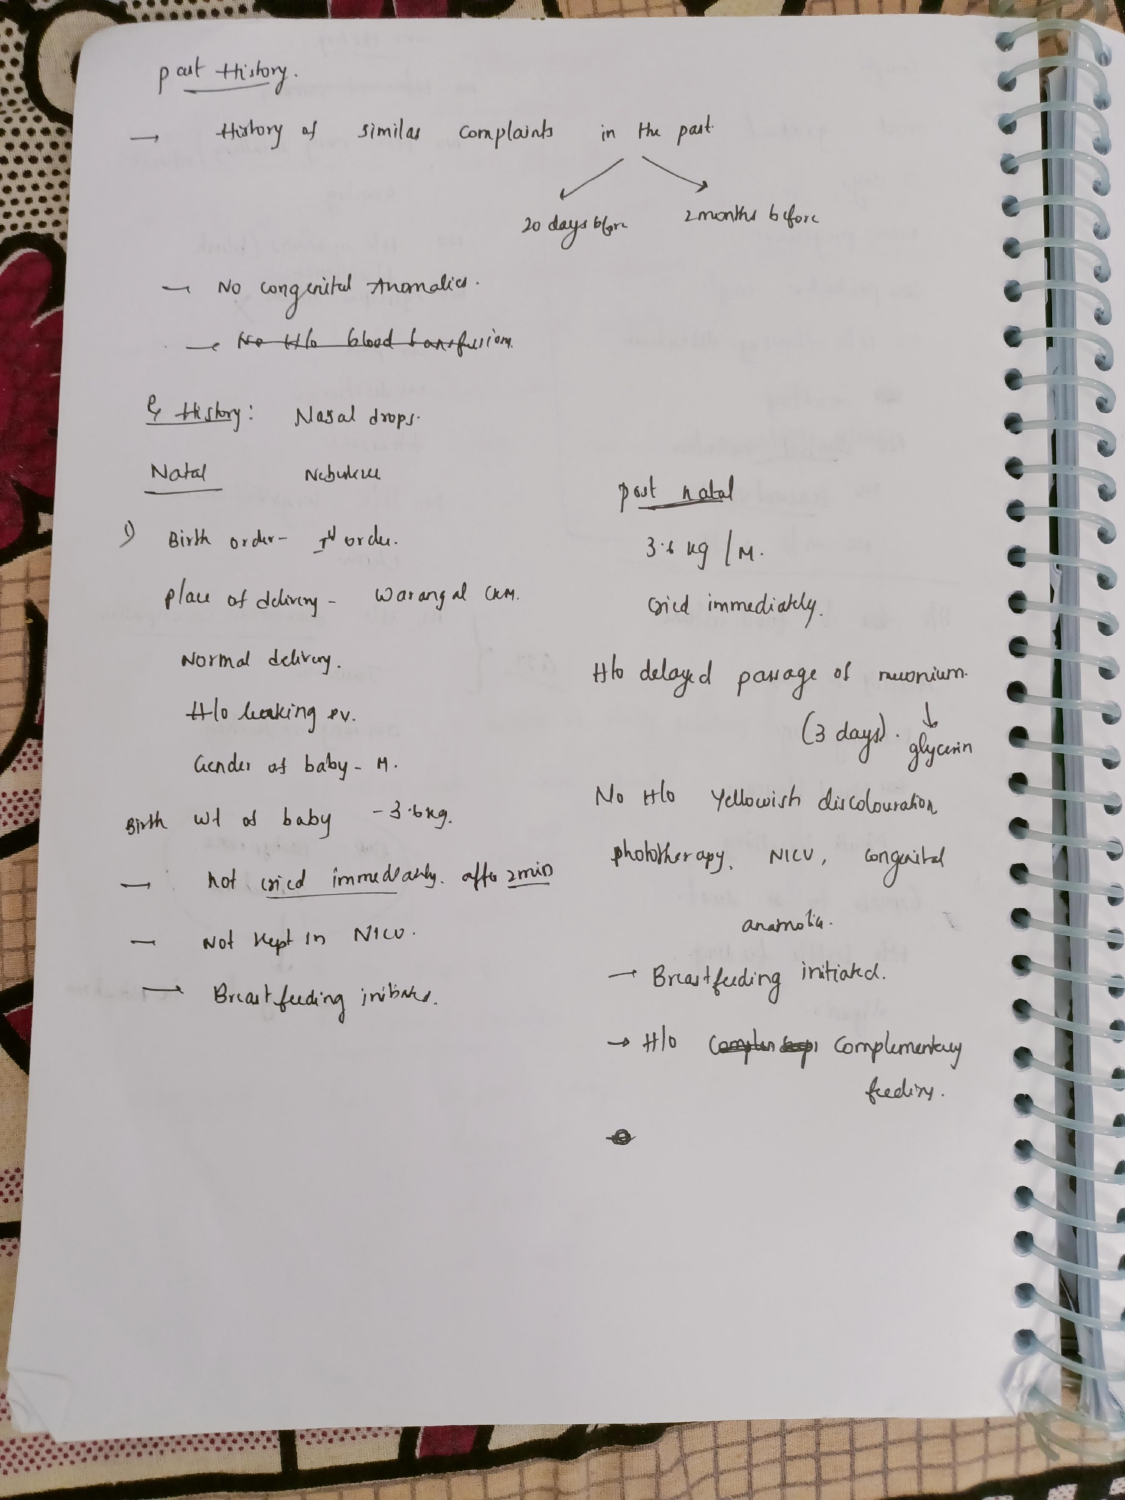 Past History.
→ History of similar complaints in the past.
20 days before
2 months before
— No congenital Anomalies.
→ No H/o blood transfusion.
History: Nasal drops.
Natal
1) Birth order - order.
Place of delivery - Warangal CKM.
Normal delivery.
H/o leaking pv.
Gender of baby - M.
Birth wt of baby - 3.6 kg.
— not cried immediately. after 2 min
— Not kept in NICU.
→ Breastfeeding initiated.
post natal
3.6 kg / M.
cried immediately.
H/o delayed passage of meconium.
(3 days).
glycerin
No H/o Yellowish discolouration
phototherapy, NICU, congenital
→ Breastfeeding initiated.
→ H/o complementary
feeding.